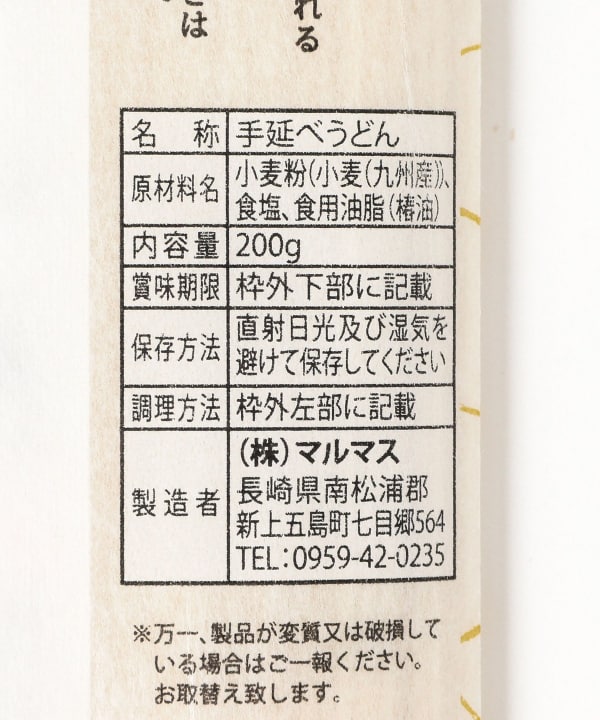 れる
とは
名称 手延べうどん
原材料名 小麦粉(小麦(九州産))、
食塩、食用油脂(椿油)
内容量 200g
賞味期限 枠外下部に記載
保存方法 直射日光及び湿気を
避けて保存してください
調理方法 枠外左部に記載
製造者 (株)マルマス
長崎県南松浦郡
新上五島町七目郷564
TEL:0959-42-0235
※万一、製品が変質又は破損して
いる場合はご一報ください。
お取替え致します。